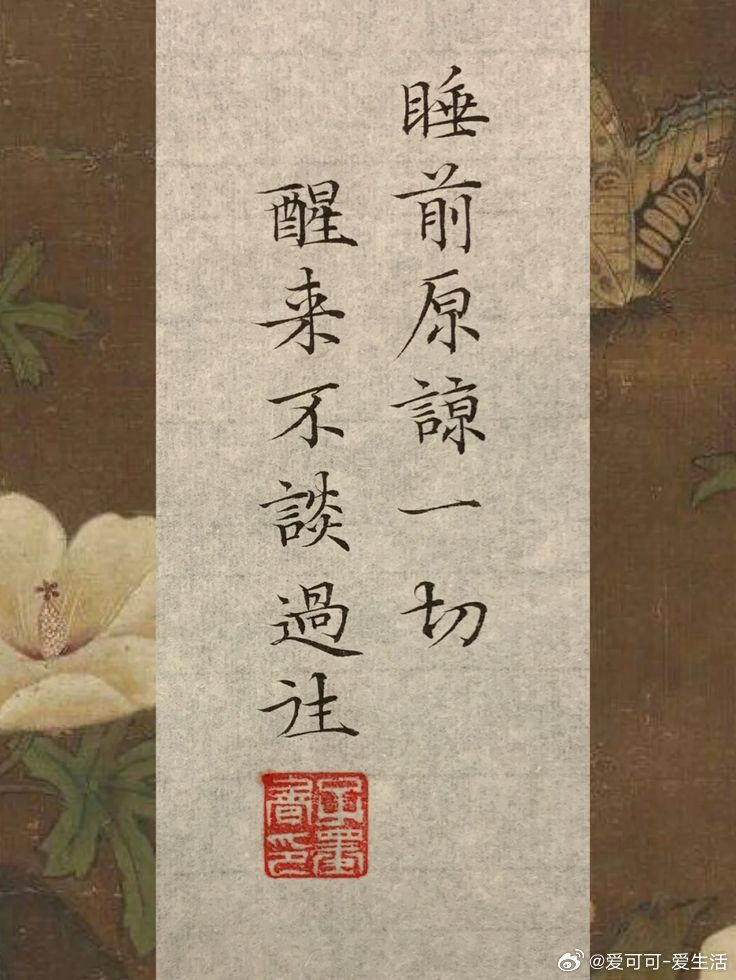 睡前原諒一切
醒来不談過往
@爱可可-爱生活